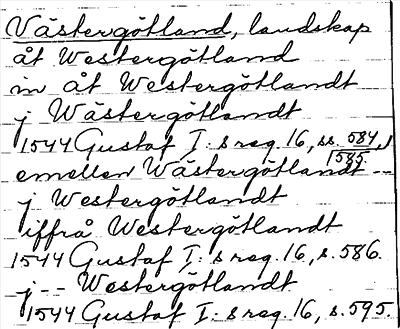 Västergötland, landskap
åt Westergötland
in åt Westergötlandt
j Wästergötlandt
1544 Gustaf I: s reg. 16, ss. 584,
585.
emellen Wästergötlandt --
j Westergötlandt
iffrå Westergötlandt
1544 Gustaf I: s reg. 16, s. 586.
j -- Westergötlandt
1544 Gustaf I: s reg. 16, s. 595.